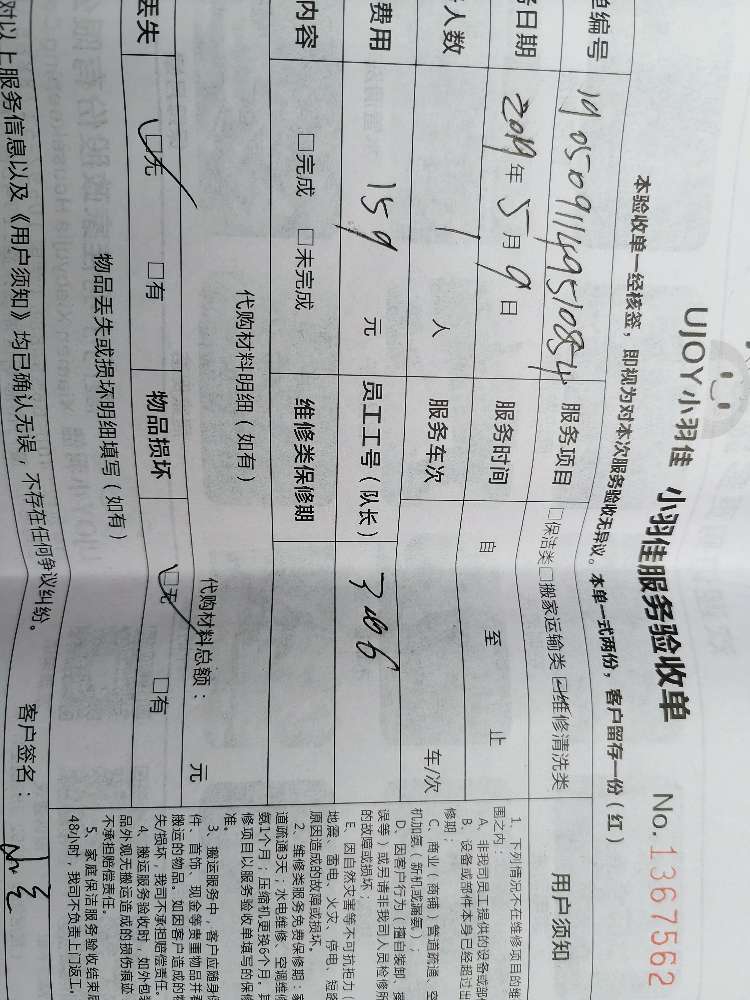 UJOY小羽佳 小羽佳服务验收单 No. 1367562
本验收单一经核签，即视为对本次服务验收无异议。本单一式两份，客户留存一份（红）
单编号 服务项目 □保洁类 □搬家运输类 ☑维修清洗类
日期 2019年5月9日 服务时间 自 至 止
人数 1 人 服务车次 车/次
费用 159 元 员工工号（队长） 3006
内容 □完成 □未完成 维修类保修期
代购材料明细（如有） 代购材料总额： 元
丢失 ☑无 □有 物品损坏 ☑无 □有
物品丢失或损坏明细填写（如有）
对以上服务信息以及《用户须知》均已确认无误，不存在任何争议纠纷。 客户签名：
用户须知
1、下列情况不在维修项目的维
围之内：
A、非我司员工提供的设备或部
B、设备或部件本身已经超过出
修期；
C、商业（商铺）管道疏通、空
机加氨（新机或漏氨）；
D、因客户行为（擅自装卸、操
误等）或另请非我司人员检修所
的故障或损坏；
E、因自然灾害等不可抗拒力（
地震、雷电、火灾、停电、短路
原因造成的故障或损坏。
2、维修类服务免费保修期：
道疏通3天；水电维修、空调维
氨1个月；压缩机更换6个月。其
修项目以服务验收单填写的保修
准。
3、搬运服务中，客户应随身保
件、首饰、现金等贵重物品并看
搬运的物品。如因客户造成的物
失/损坏，我司不承担赔偿责任。
4、搬运服务验收时，如外包装
品外观无搬运造成的损伤痕迹
不承担赔偿责任。
5、家庭保洁服务验收结束后
48小时，我司不负责上门返工。